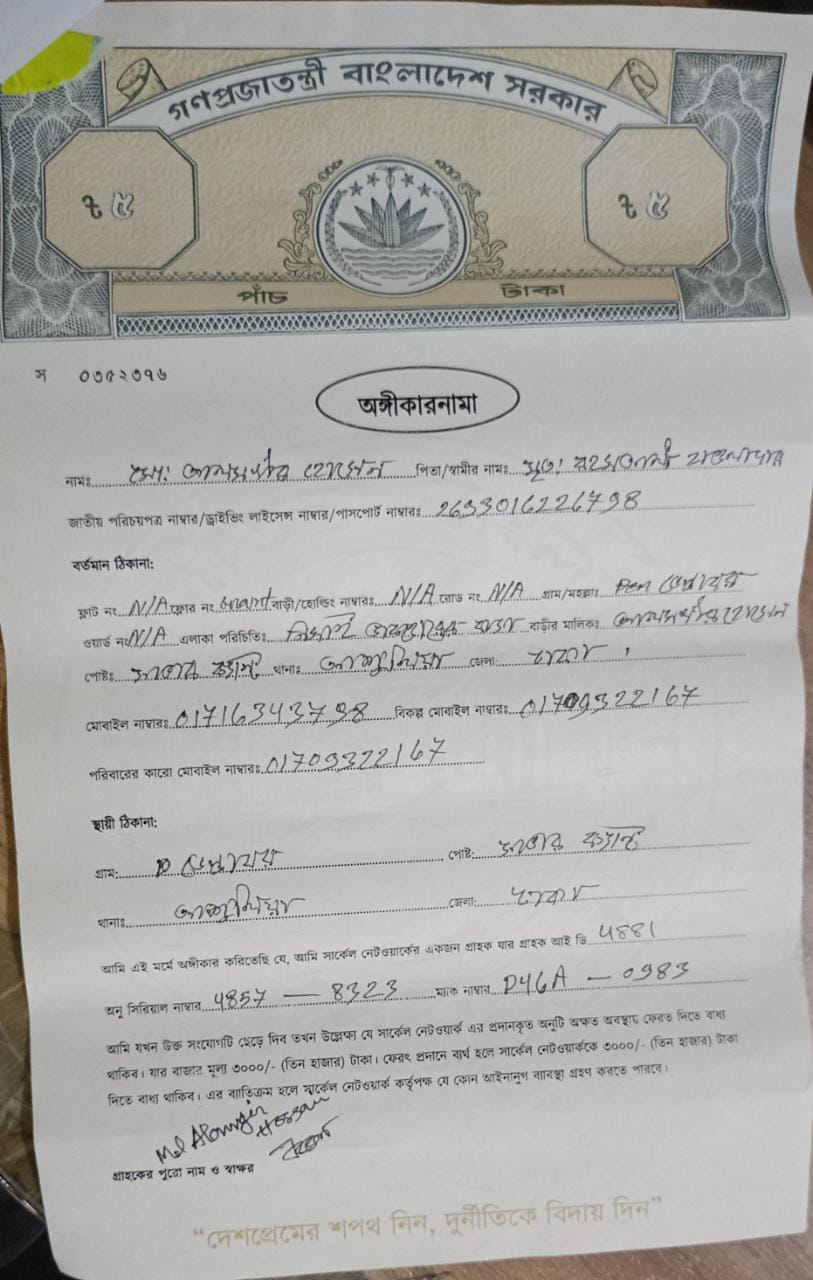 গণপ্রজাতন্ত্রী বাংলাদেশ সরকার
৳ ৫ ৳ ৫
পাঁচ টাকা
স ০৩৫২৩৭৬
অঙ্গীকারনামা
নামঃ মো: আলমগীর হোসেন পিতা/স্বামীর নামঃ মৃত:
জাতীয় পরিচয়পত্র নাম্বার/ড্রাইভিং লাইসেন্স নাম্বার/পাসপোর্ট নাম্বারঃ
বর্তমান ঠিকানা:
ফ্লাট নং N/A ফ্লোর নং বাড়ী/হোল্ডিং নাম্বারঃ N/A রোড নং N/A গ্রাম/মহল্লাঃ
ওয়ার্ড নংঃ N/A এলাকা পরিচিতিঃ বাড়ীর মালিকঃ আলমগীর হোসেন
পোষ্টঃ থানাঃ আশুলিয়া জেলা: ঢাকা
মোবাইল নাম্বারঃ 01716343798 বিকল্প মোবাইল নাম্বারঃ 01709322167
পরিবারের কারো মোবাইল নাম্বারঃ 01709322167
স্থায়ী ঠিকানা:
গ্রাম: পোষ্ট:
থানাঃ আশুলিয়া জেলা: ঢাকা
আমি এই মর্মে অঙ্গীকার করিতেছি যে, আমি সার্কেল নেটওয়ার্কের একজন গ্রাহক যার গ্রাহক আই ডি 4881
অনু সিরিয়াল নাম্বার 4857 — 8323 ম্যাক নাম্বার D46A — 0983
আমি যখন উক্ত সংযোগটি ছেড়ে দিব তখন উল্লেক্ষ্য যে সার্কেল নেটওয়ার্ক এর প্রদানকৃত অনুটি অক্ষত অবস্থায় ফেরত দিতে বাধ্য
থাকিব। যার বাজার মূল্য ৩০০০/- (তিন হাজার) টাকা। ফেরৎ প্রদানে ব্যর্থ হলে সার্কেল নেটওয়ার্ককে ৩০০০/- (তিন হাজার) টাকা
দিতে বাধ্য থাকিব। এর ব্যাতিক্রম হলে সার্কেল নেটওয়ার্ক কর্তৃপক্ষ যে কোন আইনানুগ ব্যাবস্থা গ্রহণ করতে পারবে।
Md Alamgir Hossain
গ্রাহকের পুরো নাম ও স্বাক্ষর
“দেশপ্রেমের শপথ নিন, দুর্নীতিকে বিদায় দিন”